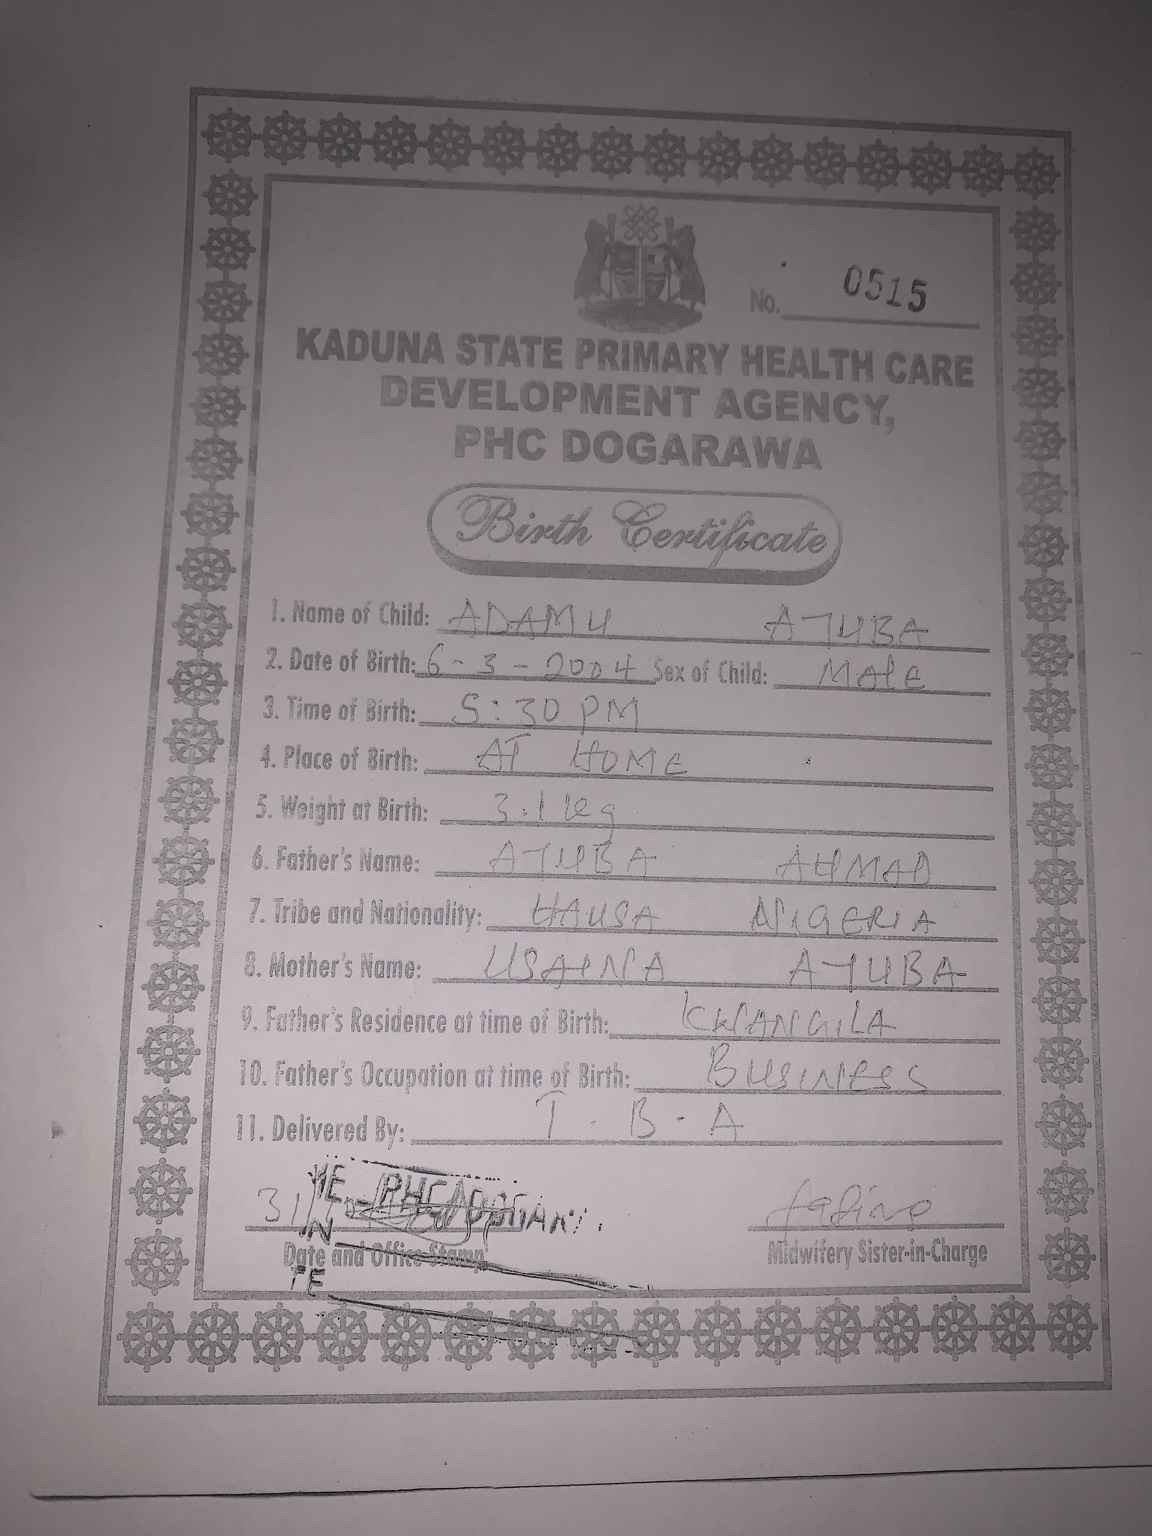 No. 0515
KADUNA STATE PRIMARY HEALTH CARE
DEVELOPMENT AGENCY,
PHC DOGARAWA
Birth Certificate
1. Name of Child: ADAMU AYUBA
2. Date of Birth: 6-3-2004 Sex of Child: Male
3. Time of Birth: 5:30 PM
4. Place of Birth: AT HOME
5. Weight at Birth: 3.1 kg
6. Father's Name: AYUBA AHMAD
7. Tribe and Nationality: HAUSA NIGERIA
8. Mother's Name: USAINA AYUBA
9. Father's Residence at time of Birth: KWANGILA
10. Father's Occupation at time of Birth: BUSINESS
11. Delivered By: T.B.A
31
Date and Office Stamp Midwifery Sister-in-Charge